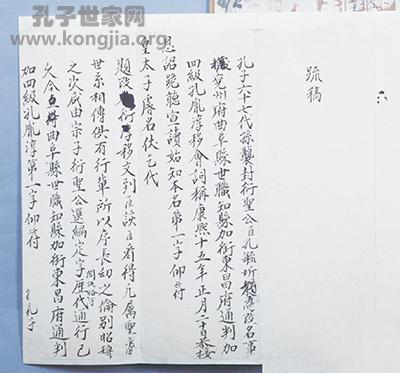 孔子世家网
www.kongjia.org
疏稿
孔子六十七代孫襲封衍聖公臣孔毓圻為改名事
兗州府曲阜縣世職知縣加銜東昌府通判加
四級孔胤淳移會詞稱康熙十五年正月二十日恭接
恩詔跪聽宣讀始知本名第一字仰符
皇太子睿名伏乞代
題改衍淳移文到臣該臣看得凡属聖裔
世系相傳俱有行輩所以序長幼之倫别昭穆
之次咸由宗子衍聖公選編定字歷代通行已
久今曲阜縣世職知縣加銜東昌府通判
加四級孔胤淳第一字仰符